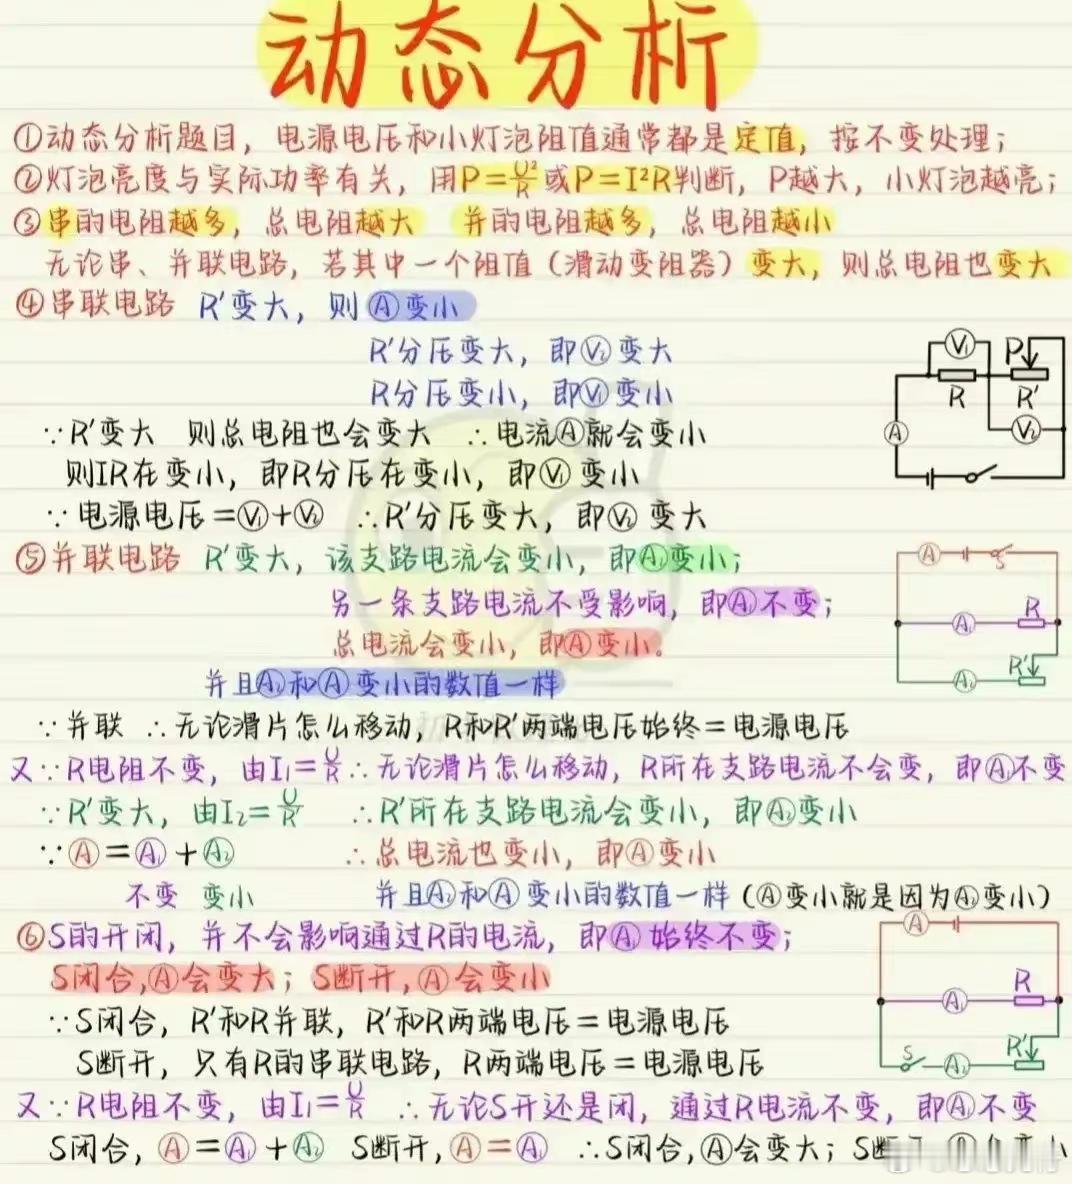 动态分析
①动态分析题目，电源电压和小灯泡阻值通常都是定值，按不变处理；
②灯泡亮度与实际功率有关，用P=U²/R或P=I²R判断，P越大，小灯泡越亮；
③串的电阻越多，总电阻越大 并的电阻越多，总电阻越小
无论串、并联电路，若其中一个阻值（滑动变阻器）变大，则总电阻也变大
④串联电路 R'变大，则Ⓐ变小
R'分压变大，即V₂变大
R分压变小，即V₁变小
V₁ P
R R'
A V₂
∵R'变大 则总电阻也会变大 ∴电流Ⓐ就会变小
则IR在变小，即R分压在变小，即V₁变小
∵电源电压=V₁+V₂ ∴R'分压变大，即V₂变大
⑤并联电路 R'变大，该支路电流会变小，即A₂变小；
另一条支路电流不受影响，即A₁不变；
总电流会变小，即Ⓐ变小。
并且A₂和Ⓐ变小的数值一样
A S
A₁ R
A₂ R'
∵并联 ∴无论滑片怎么移动，R和R'两端电压始终=电源电压
又∵R电阻不变，由I₁=U/R ∴无论滑片怎么移动，R所在支路电流不会变，即A₁不变
∵R'变大，由I₂=U/R' ∴R'所在支路电流会变小，即A₂变小
∵Ⓐ=A₁+A₂ ∴总电流也变小，即Ⓐ变小
不变 变小 并且A₂和Ⓐ变小的数值一样（Ⓐ变小就是因为A₂变小）
⑥S的开闭，并不会影响通过R的电流，即A₁始终不变；
S闭合，Ⓐ会变大；S断开，Ⓐ会变小
A
A₁ R
S A₂ R'
∵S闭合，R'和R并联，R'和R两端电压=电源电压
S断开，只有R的串联电路，R两端电压=电源电压
又∵R电阻不变，由I₁=U/R ∴无论S开还是闭，通过R电流不变，即A₁不变
S闭合，Ⓐ=A₁+A₂ S断开，Ⓐ=A₁ ∴S闭合，Ⓐ会变大；S断